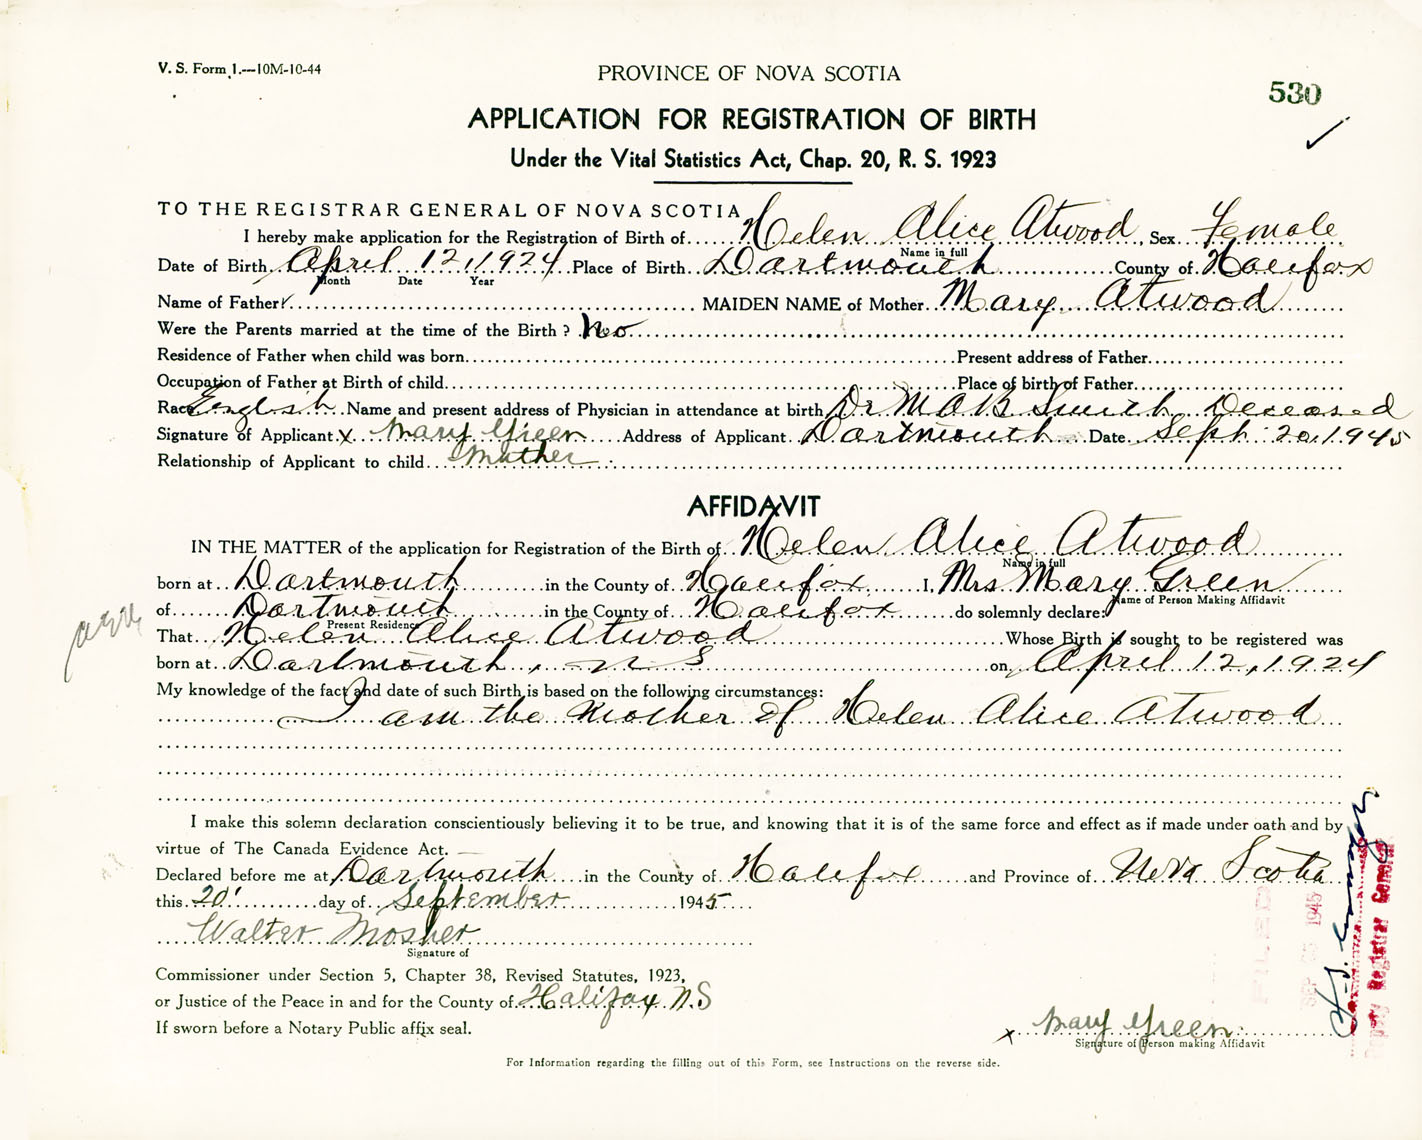 V. S. Form 1.—10M-10-44
PROVINCE OF NOVA SCOTIA
530
APPLICATION FOR REGISTRATION OF BIRTH
Under the Vital Statistics Act, Chap. 20, R. S. 1923
TO THE REGISTRAR GENERAL OF NOVA SCOTIA
I hereby make application for the Registration of Birth of Helen Alice Atwood, Sex Female
Name in full
Date of Birth April 12, 1924 Place of Birth Dartmouth County of Halifax
Month Date Year
Name of Father MAIDEN NAME of Mother Mary Atwood
Were the Parents married at the time of the Birth? No
Residence of Father when child was born Present address of Father
Occupation of Father at Birth of child Place of birth of Father
Race English Name and present address of Physician in attendance at birth Dr M A B Smith Deceased
Signature of Applicant x Mary Green Address of Applicant Dartmouth Date Sept 20, 1945
Relationship of Applicant to child Mother
AFFIDAVIT
IN THE MATTER of the application for Registration of the Birth of Helen Alice Atwood
Name in full
born at Dartmouth in the County of Halifax I, Mrs Mary Green
Name of Person Making Affidavit
of Dartmouth in the County of Halifax do solemnly declare:
Present Residence
That Helen Alice Atwood Whose Birth is sought to be registered was
born at Dartmouth, N S on April 12, 1924
My knowledge of the fact and date of such Birth is based on the following circumstances:
I am the Mother of Helen Alice Atwood
I make this solemn declaration conscientiously believing it to be true, and knowing that it is of the same force and effect as if made under oath and by
virtue of The Canada Evidence Act.
Declared before me at Dartmouth in the County of Halifax and Province of Nova Scotia
this 20 day of September 1945
Walter Mosher
Signature of
Commissioner under Section 5, Chapter 38, Revised Statutes, 1923,
or Justice of the Peace in and for the County of Halifax N.S
If sworn before a Notary Public affix seal.
x Mary Green
Signature of Person making Affidavit
For Information regarding the filling out of this Form, see Instructions on the reverse side.
FILED
SEP 1945
Deputy Registrar General